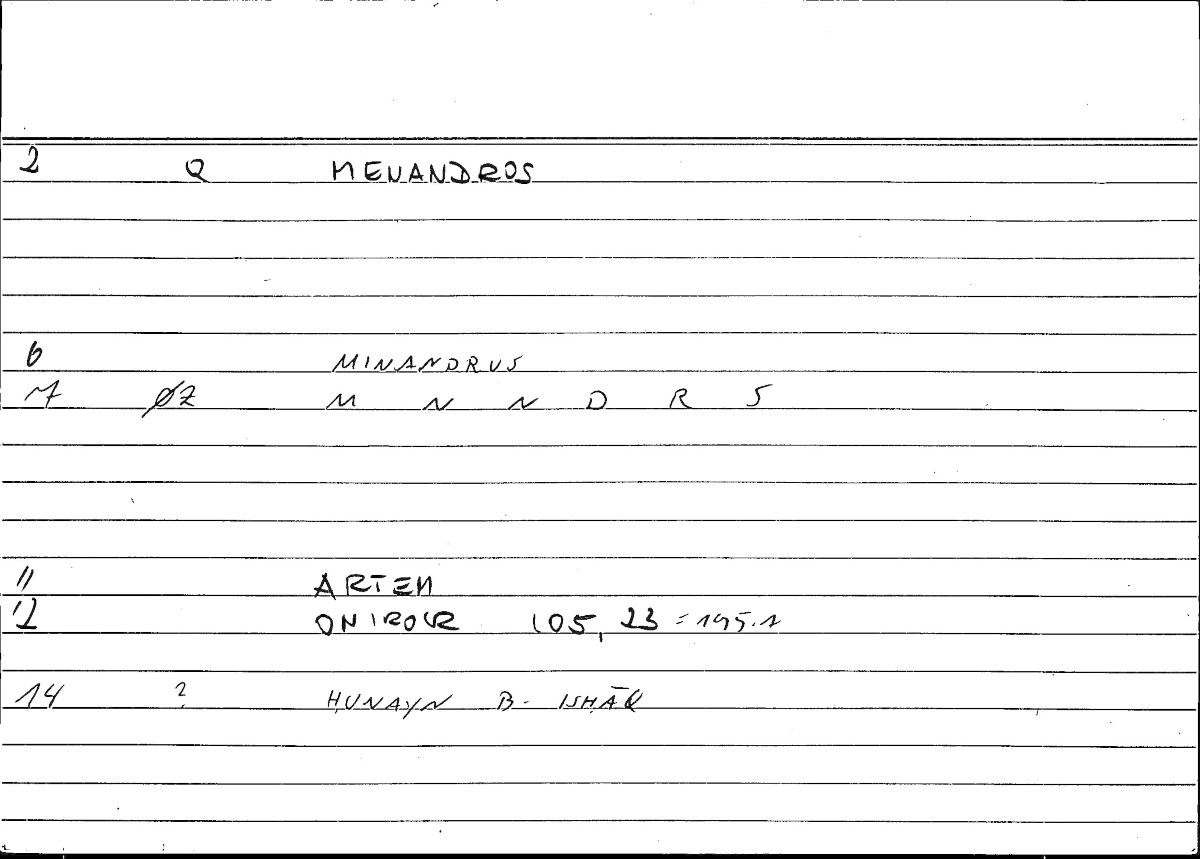 2 Q MENANDROS
6 MINANDRUS
7 ØZ M N N D R S
11 ARTEM
12 ONIROCR 105, 23 = 195.1
14 ? ḤUNAYN B. ISḤĀQ